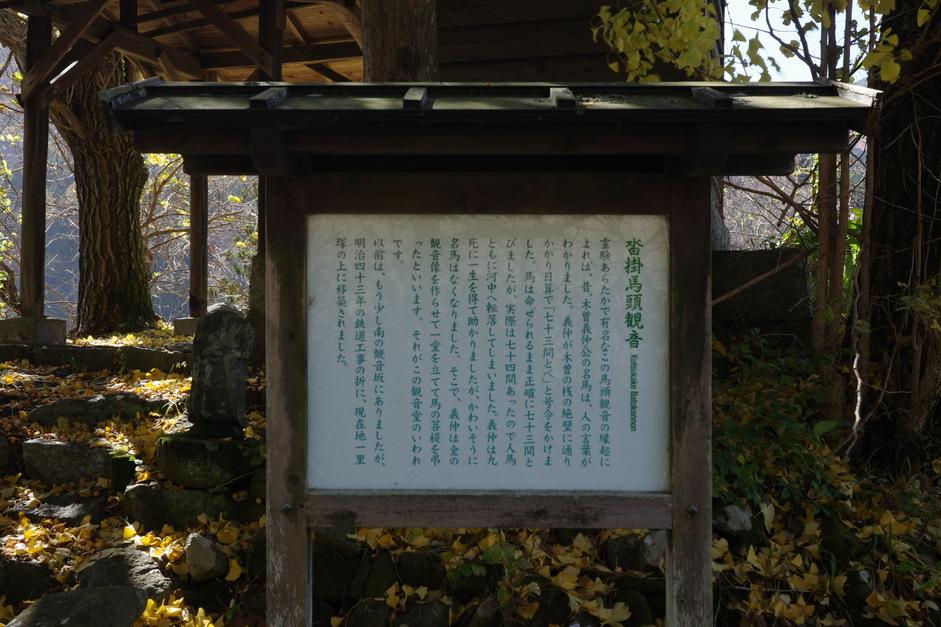 沓掛馬頭観音 Kutsukake Batokannon
霊験あらたかで有名なこの馬頭観音の縁起に
よれば、昔、木曽義仲公の名馬は、人の言葉が
わかりました。義仲が木曽の桟の絶壁に通り
かかり目算で「七十三間とべ」と号令をかけま
した。馬は命ぜられるまま正確に七十三間と
びましたが、実際は七十四間あったので人馬
ともに河中へ転落してしまいました。義仲は九
死に一生を得て助かりましたが、かわいそうに
名馬はなくなりました。そこで、義仲は金の
観音像を作らせて一堂を立てて馬の菩提を弔
ったといいます。それがこの観音堂のいわれ
です。
以前は、もう少し南の観音坂にありましたが、
明治四十三年の鉄道工事の折に、現在地一里
塚の上に移築されました。